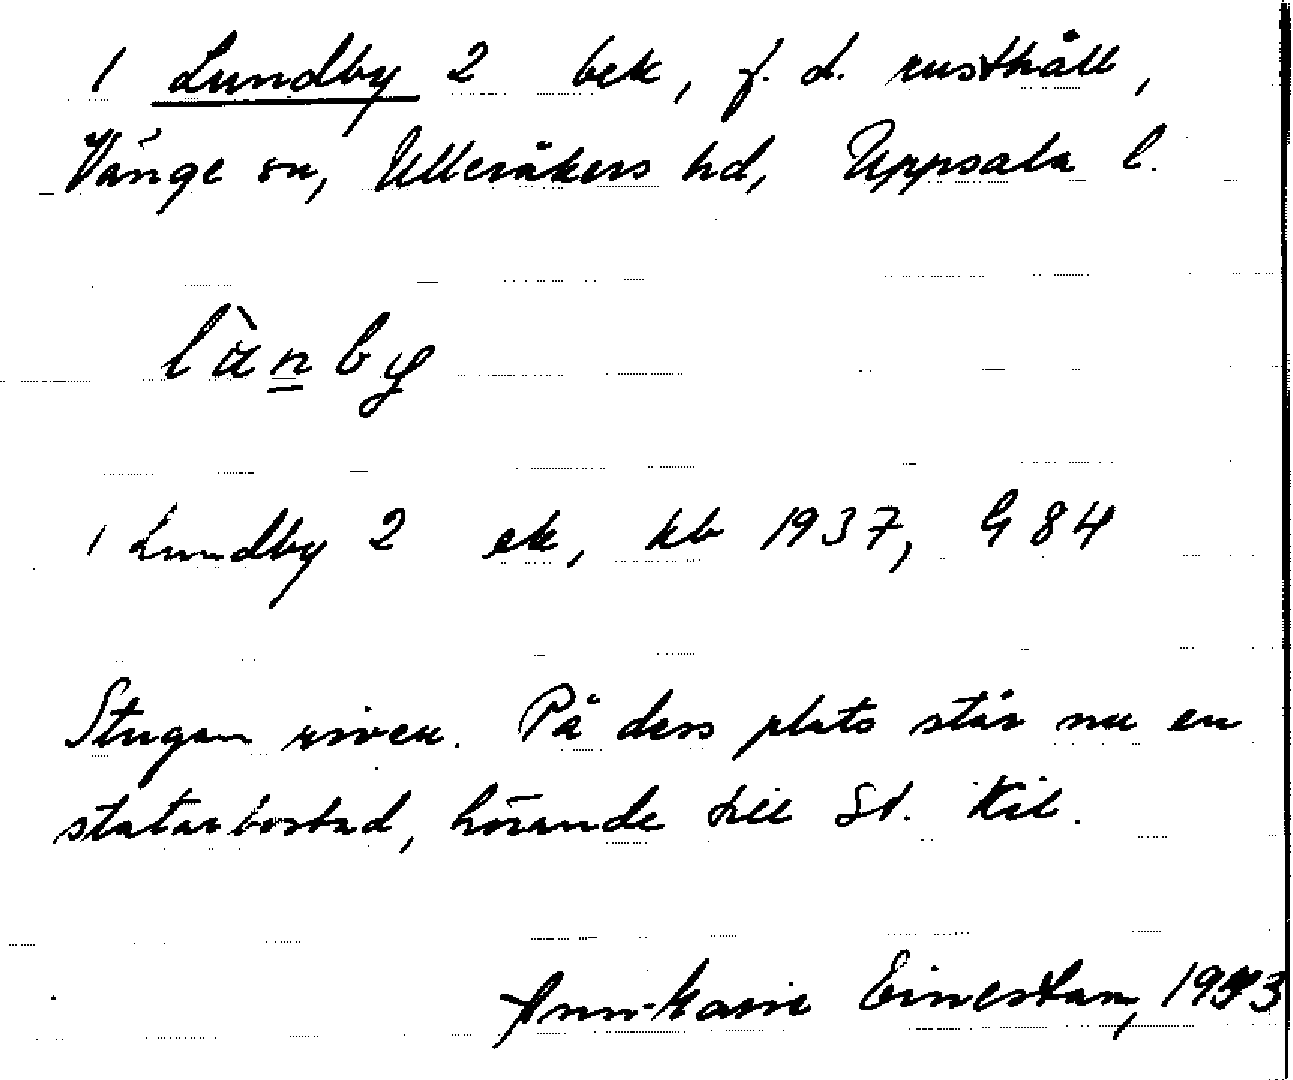 1 Lundby 2 bek, f. d. rusthåll,
Vänge sn, Ulleråkers hd, Uppsala l.
lànby
1 Lundby 2 ek, kb 1937, G 84
Stugan riven. På dess plats står nu en
statarbostad, hörande till St. Kil.
Ann-Marie Einestam,